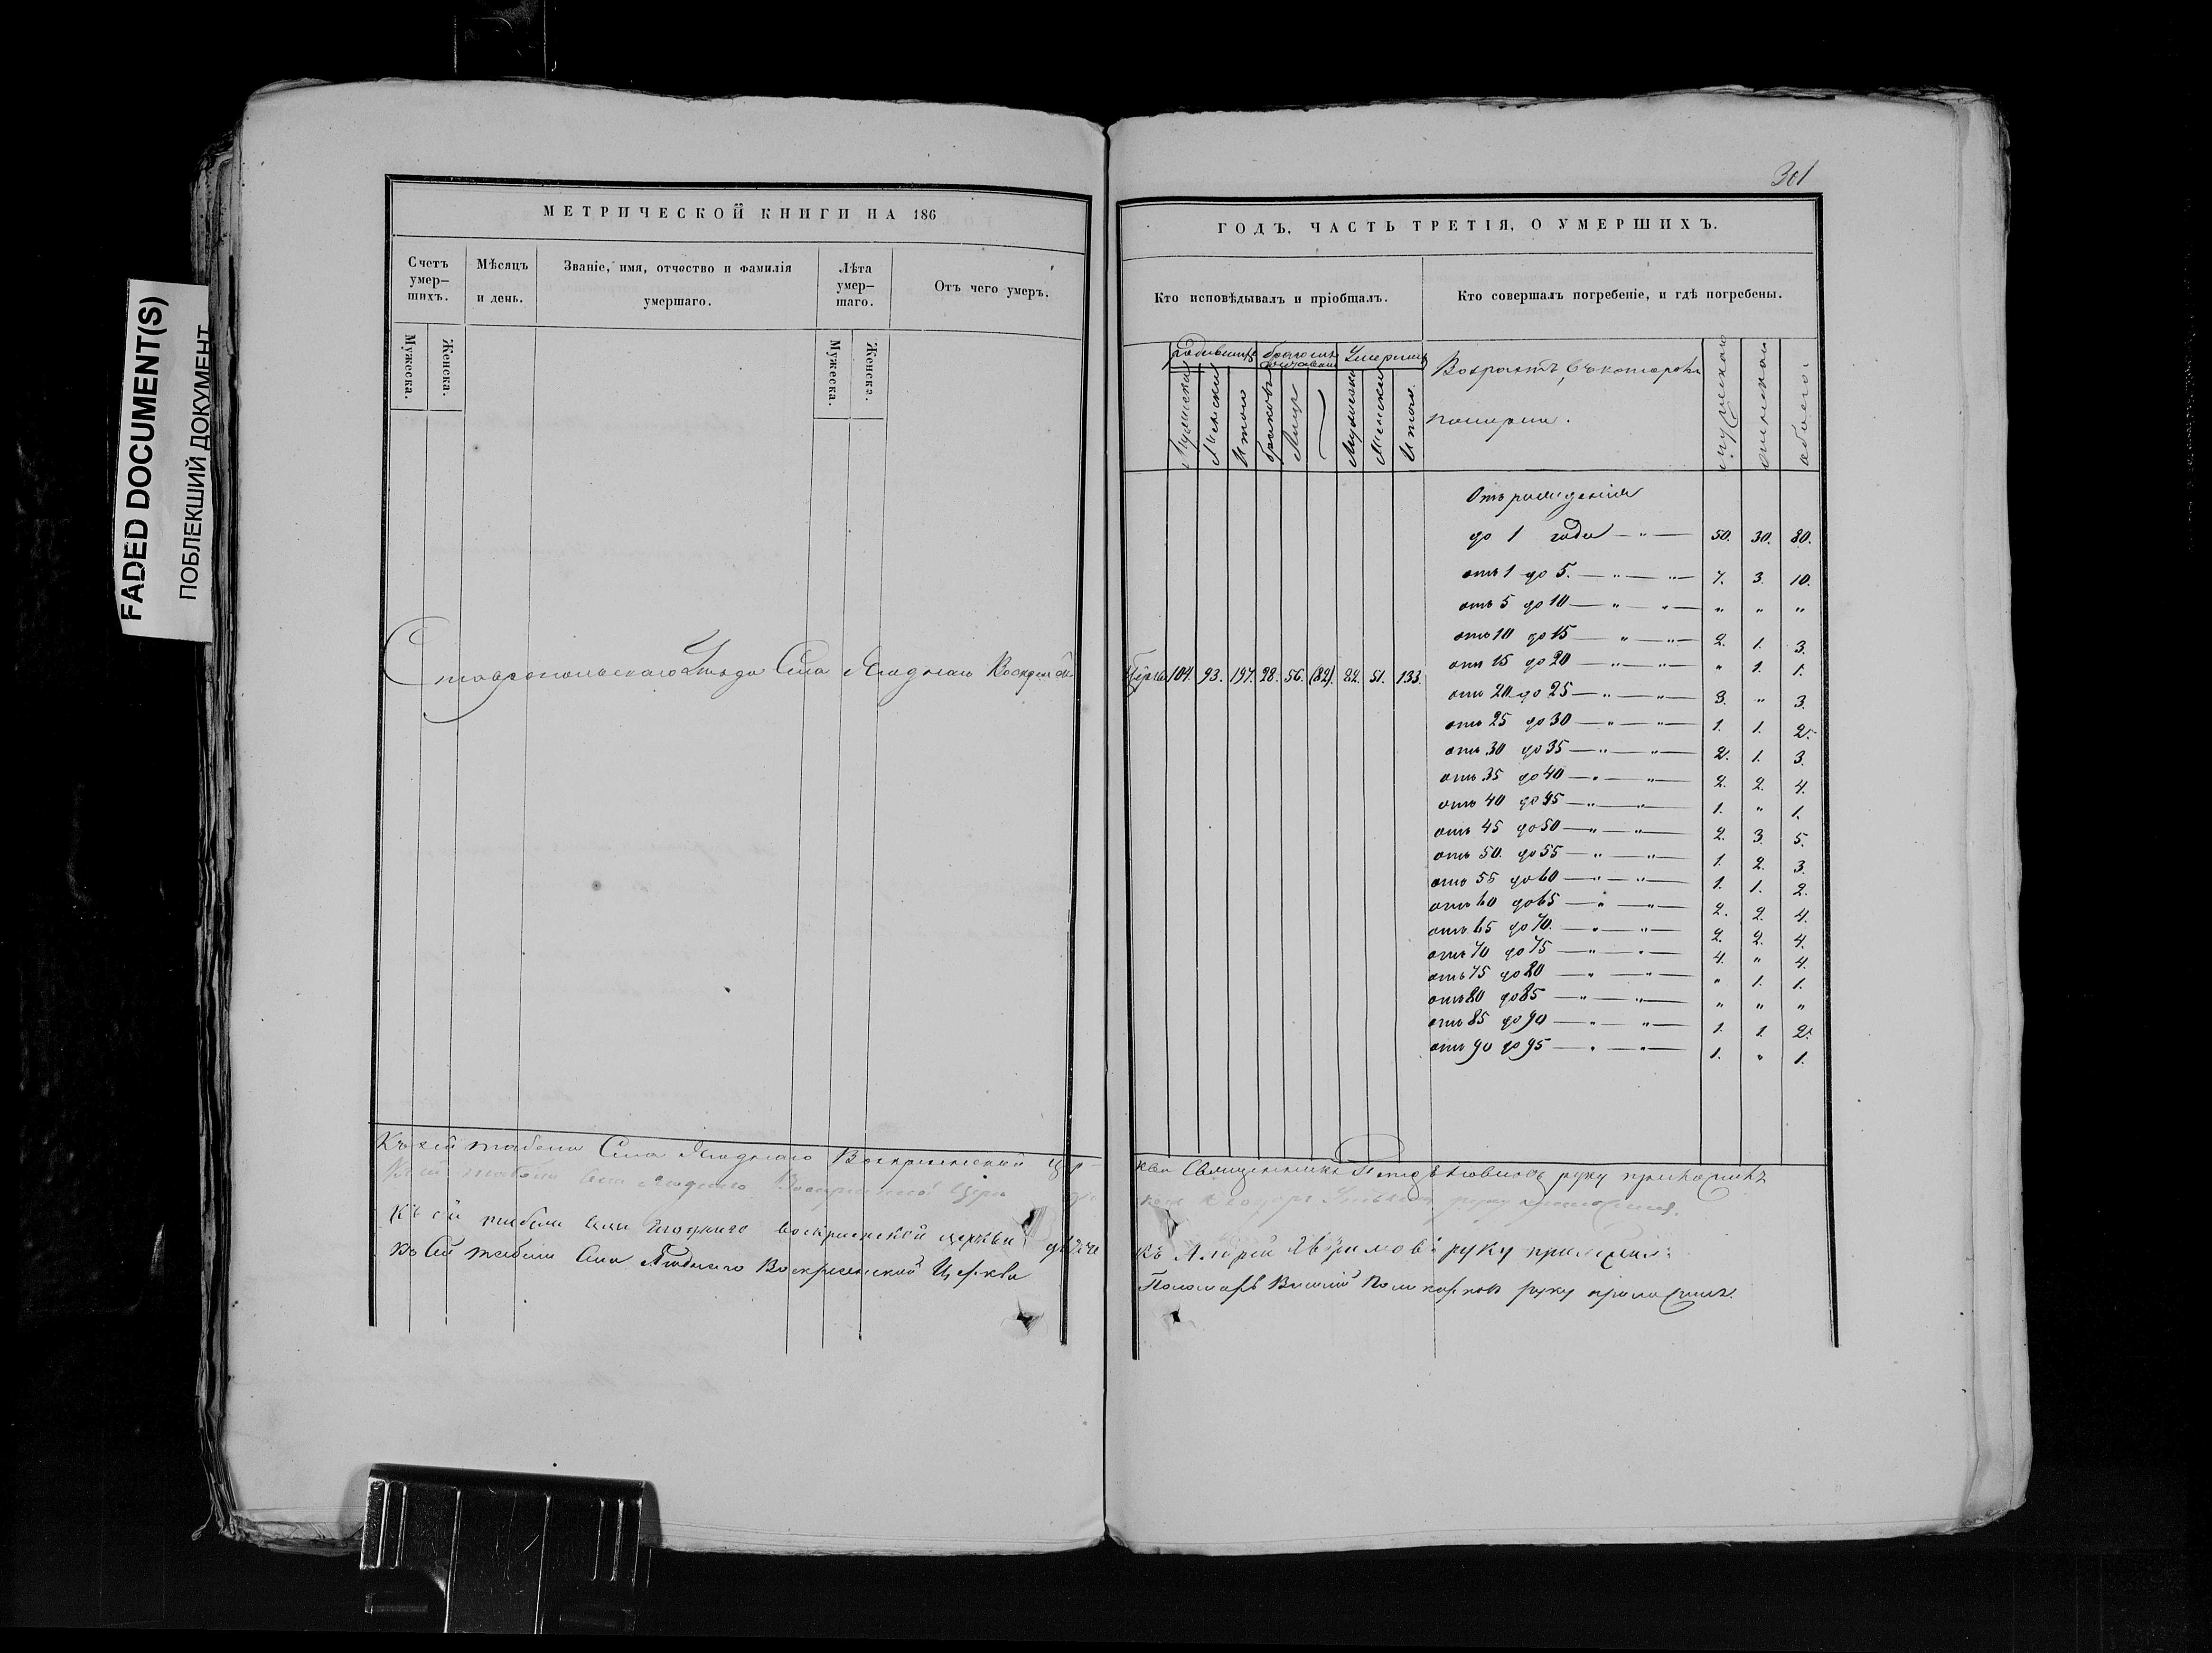 FADED DOCUMENT(S)
ПОБЛЕКШИЙ ДОКУМЕНТ
МЕТРИЧЕСКОЙ КНИГИ НА 186
Счетъ умер–шихъ.
Мужеска.
Женска.
Мѣсяцъ и день.
Званіе, имя, отчество и фамилія умершаго.
Лѣта умер–шаго.
Мужеска.
Женска.
Отъ чего умеръ.
Ставропольскаго Уѣзда Села Ягоднаго Воскресенской
Къ сей табели Села Ягоднаго Воскресенской Цер–
Къ сей табели Села Ягоднаго Воскресенской Церк
Къ сей табели села Ягоднаго воскресенской церкви
Къ сей табели Села Ягоднаго Воскресенской Церкви
301
ГОДЪ, ЧАСТЬ ТРЕТІЯ, О УМЕРШИХЪ.
Кто исповѣдывалъ и пріобщалъ.
Кто совершалъ погребеніе, и гдѣ погребены.
Родившихся
Умершихъ
Мужеска
Женска
Итого
браковъ
Лицъ
Мужеска
Женска
Итого.
Возрастъ, въ которомъ
померли.
мужескаго
женскаго
обоего
Отъ рожденія
до 1 года — " — 50. 30. 80.
отъ 1 до 5. — " — " — 7. 3. 10.
отъ 5 до 10 — " — " — " " "
отъ 10 до 15 — " — " — 2. 1. 3.
отъ 15 до 20 — " — " — " 1. 1.
Церкви 104. 93. 197. 28. 56. (82). 82. 51. 133.
отъ 20 до 25 — " — " — 3. " 3.
отъ 25 до 30 — " — " — 1. 1. 2.
отъ 30 до 35 — " — " — 2. 1. 3.
отъ 35 до 40 — " — " — 2. 2. 4.
отъ 40 до 45 — " — " — 1. " 1.
отъ 45 до 50 — " — " — 2. 3. 5.
отъ 50. до 55 — " — " — 1. 2. 3.
отъ 55 до 60 — " — " — 1. 1. 2.
отъ 60 до 65 — " — " — 2. 2. 4.
отъ 65 до 70. — " — " — 2. 2. 4.
отъ 70 до 75 — " — " — 4. " 4.
отъ 75 до 80 — " — " — " 1. 1.
отъ 80 до 85 — " — " — " " "
отъ 85 до 90 — " — " — 1. 1. 2.
отъ 90 до 95 — " — " — 1. " 1.
кви Священникъ руку приложилъ
руку приложилъ.
къ Андрей руку приложилъ
Пономарь Василій Поликарповъ руку приложилъ.